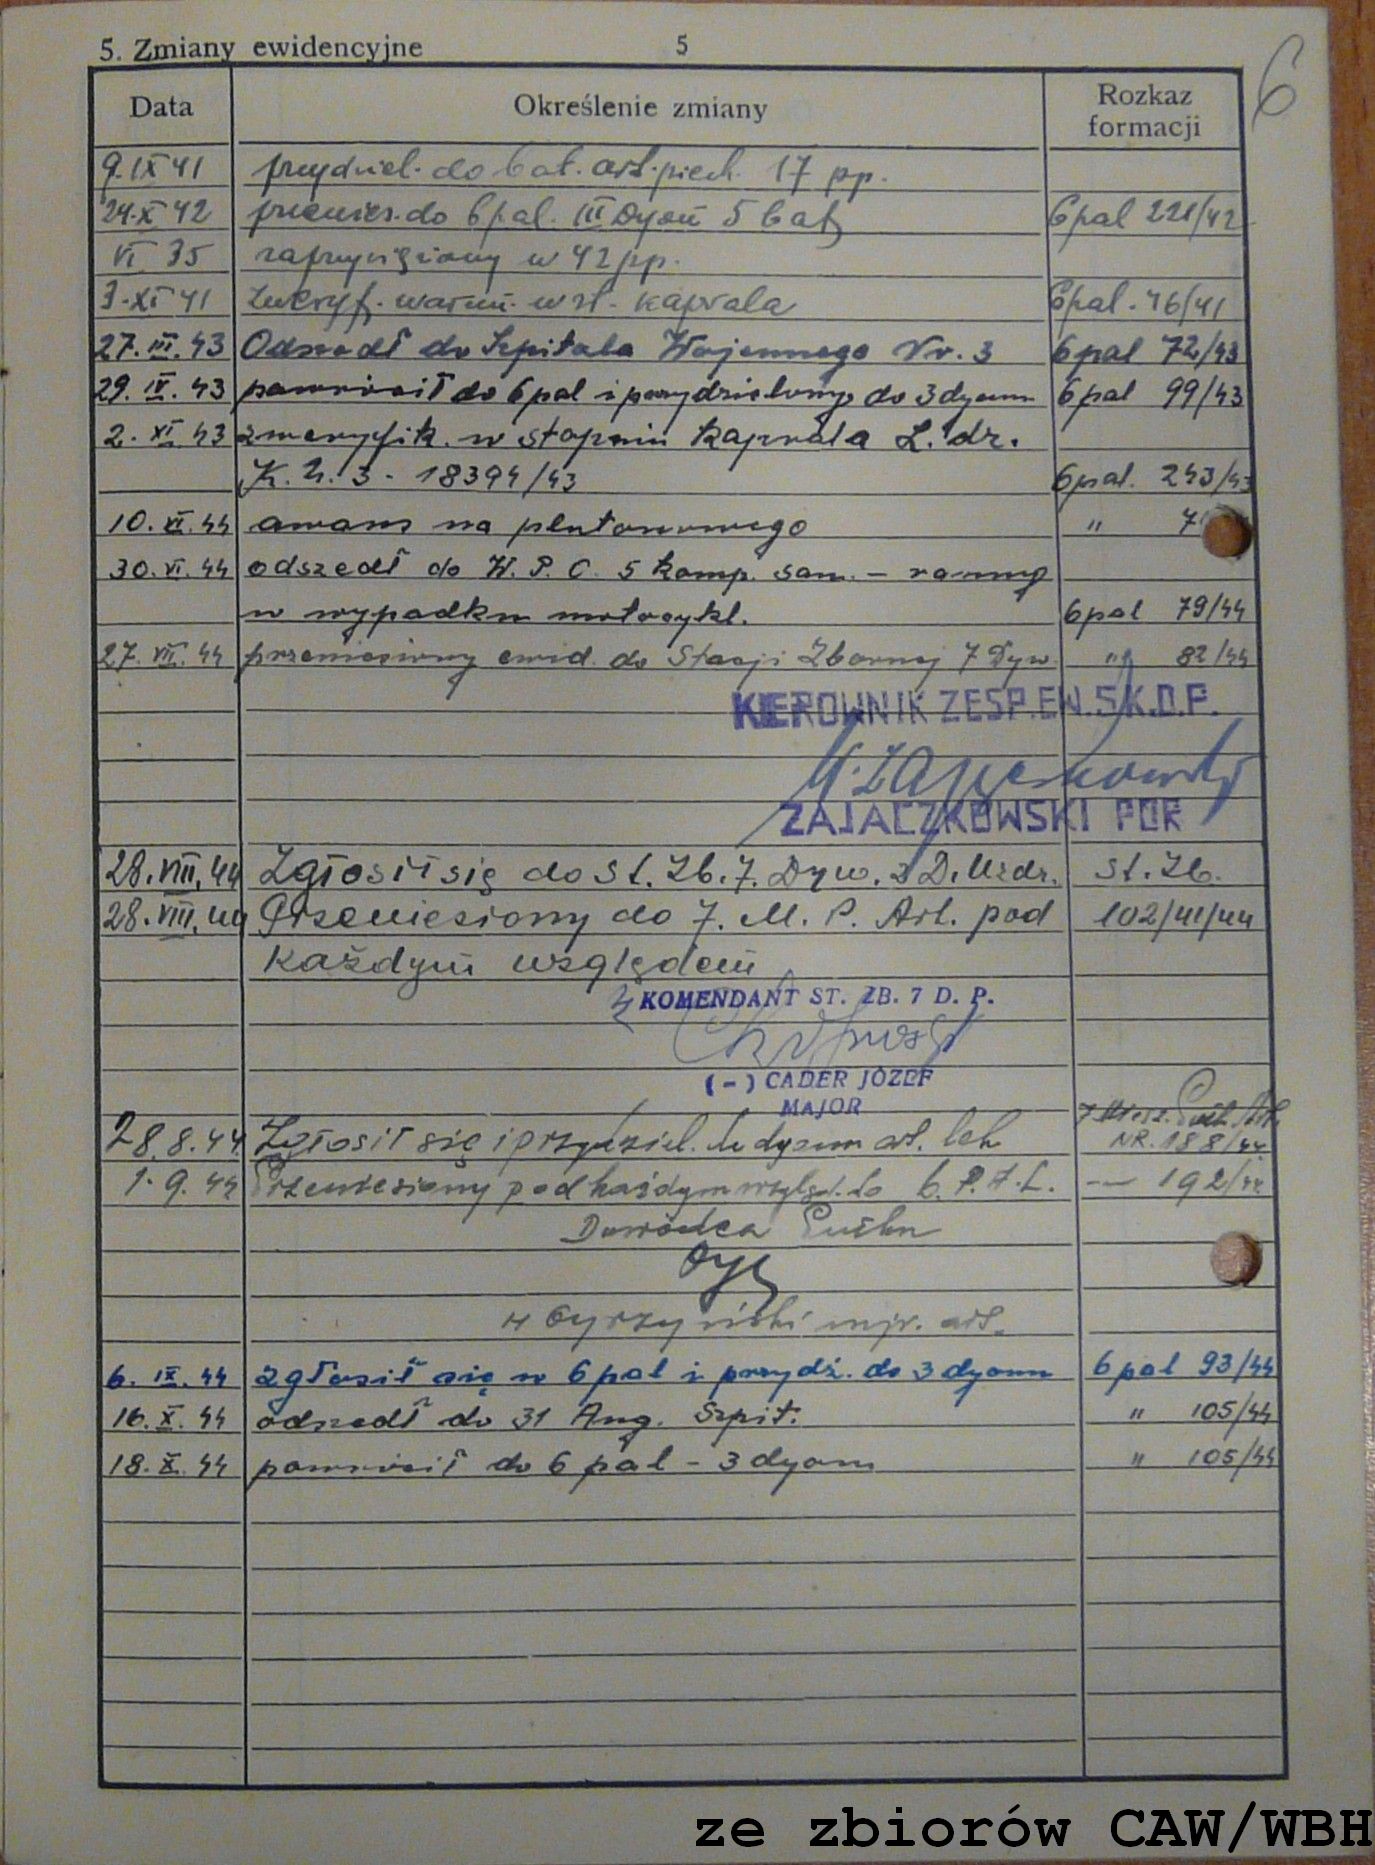 5. Zmiany ewidencyjne 5
6
Data Określenie zmiany Rozkaz formacji
9.IX 41 przydziel. do bat. art. piech. 17 pp.
24.X 42 przenies. do 6 pal. III Dyon 5 bat 6 pal 221/42
VI 35 zaprzysiężony w 42 pp.
3.XI 41 zweryf. warun. w st. kaprala 6 pal. 76/41
27. III. 43 Odszedł do Szpitala Wojennego Nr. 3 6 pal 72/43
29. IV. 43 powrócił do 6 pal i przydzielony do 3 dyonu 6 pal 99/43
2. XI. 43 zweryfik. w stopniu kaprala L. dz.
K. U. 3 - 18394/43 6 pal. 243/43
10. VI. 44 awans na plutonowego "
30. VI. 44 odszedł do W. P. O. 5 komp. san. - ranny
w wypadku motocykl. 6 pal 79/44
27. VII. 44 przeniesiony ewid. do Stacji Zbornej 7 Dyw. " 82/44
KIEROWNIK ZESP. EW. 5 K.D.P.
ZAJĄCZKOWSKI POR
28. VIII. 44 Zgłosił się do St. Zb. 7. Dyw. St. Zb.
28. VIII. 44 Przeniesiony do 7. M. P. Art. pod 102/41/44
każdym względem
KOMENDANT ST. ZB. 7 D. P.
(-) CADER JÓZEF
MAJOR
28. 8. 44 Zgłosił się i przydziel. do dyonu art. lek NR. 188/44
1. 9. 44 Przeniesiony pod każdym wzgl. do 6. P.A.L. — 192/44
Dowódca Pułku
mjr. art.
6. IX. 44 zgłosił się w 6 pal i przydz. do 3 dyonu 6 pal 93/44
16. X. 44 odszedł do 31 Ang. Szpit. " 105/44
18. X. 44 powrócił do 6 pal - 3 dyonu " 105/44
ze zbiorów CAW/WBH